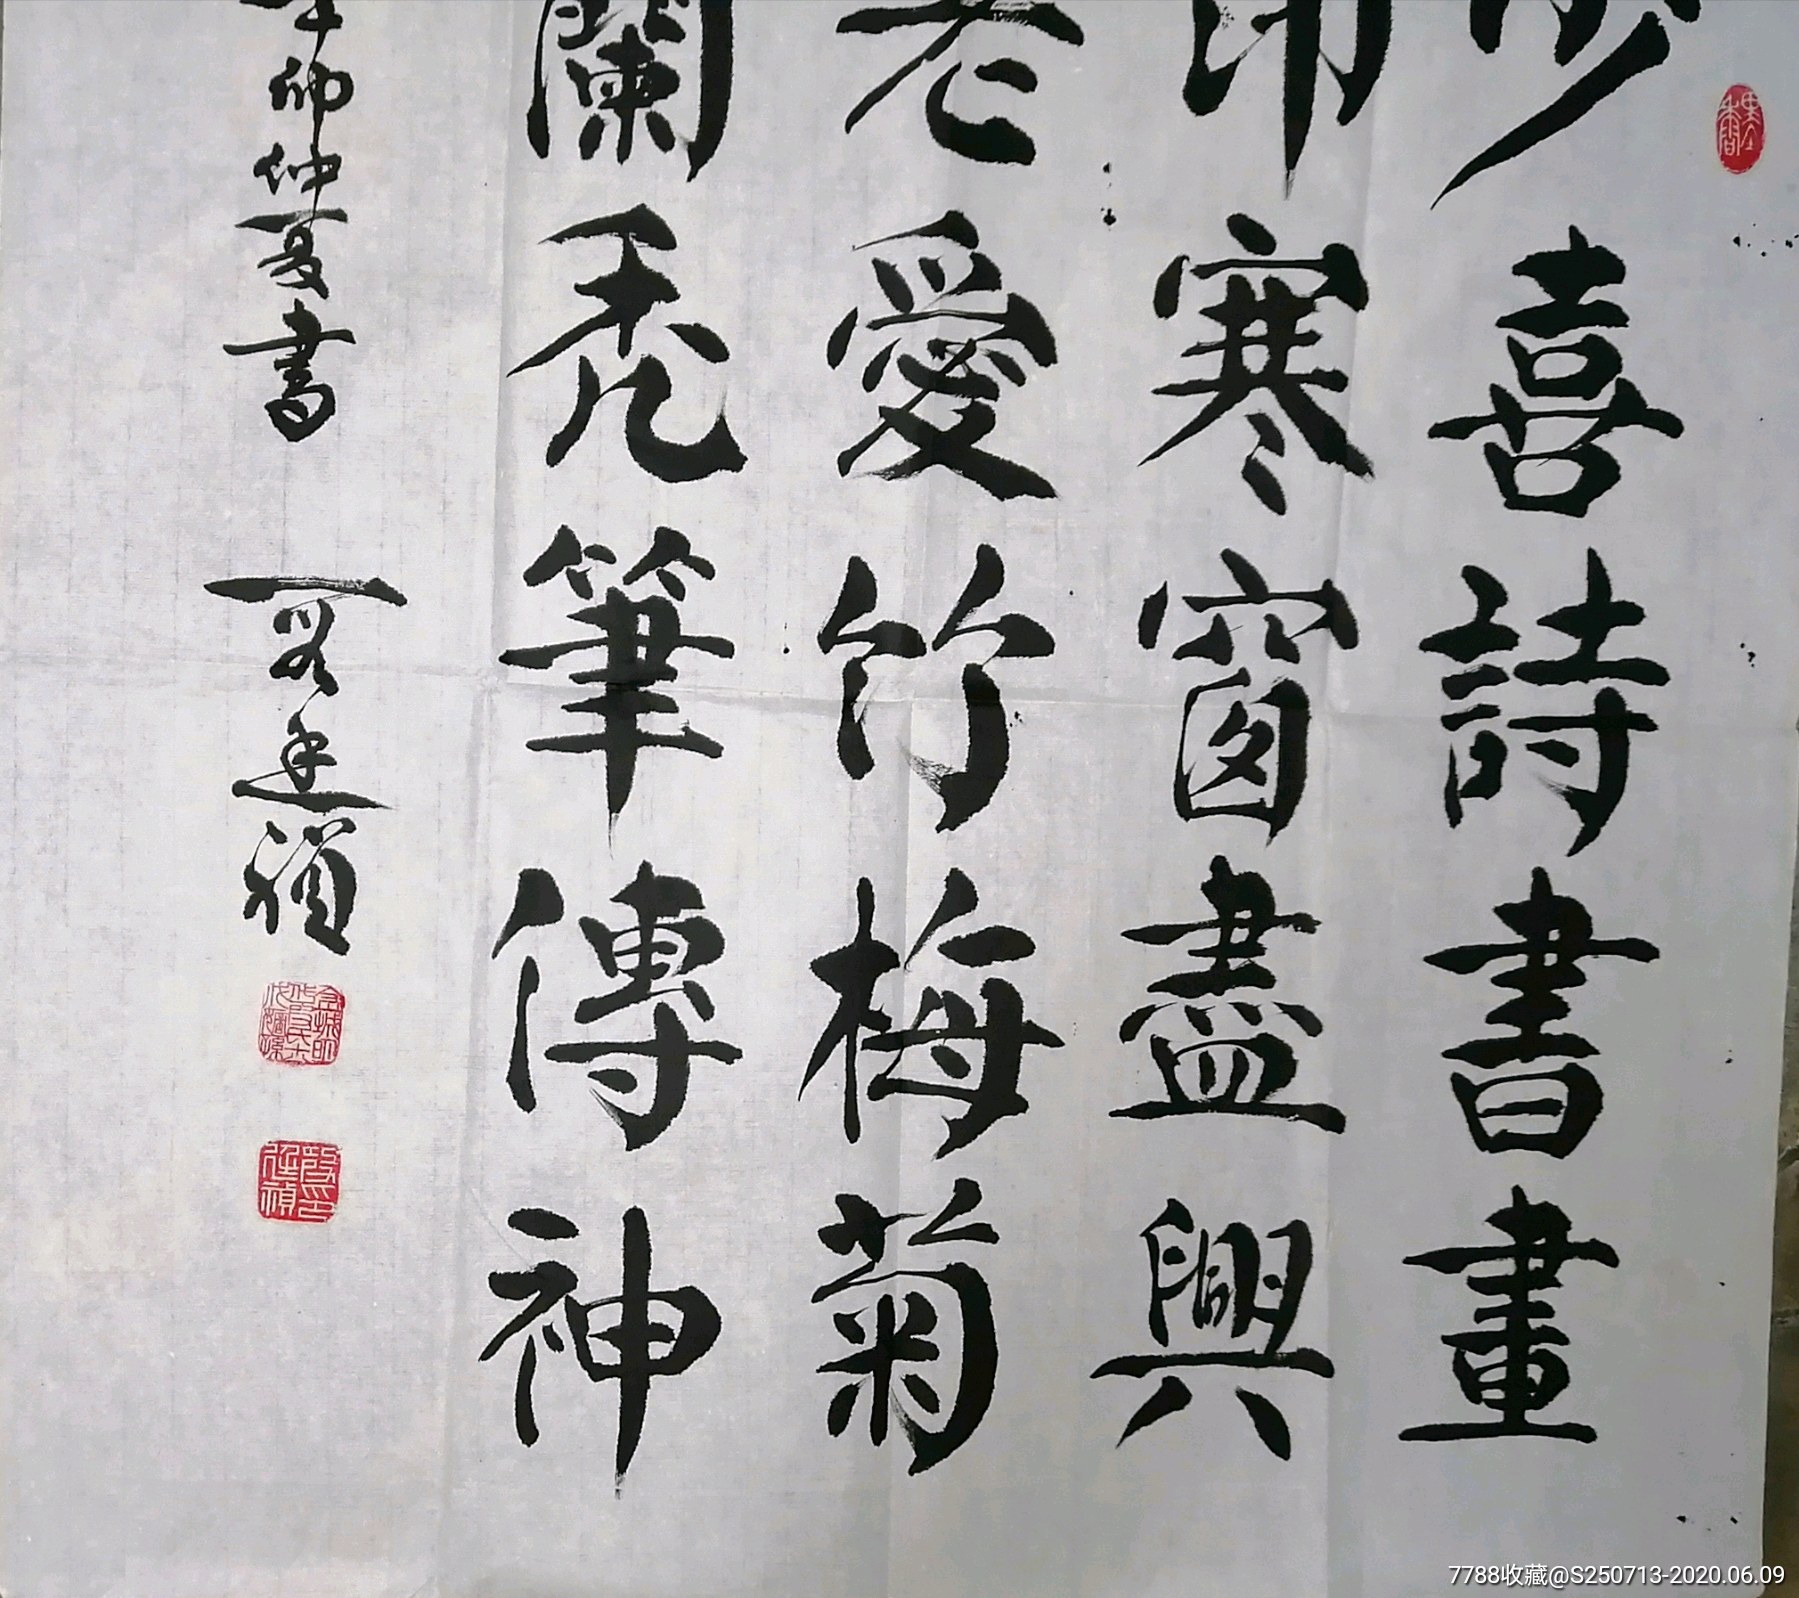 少喜詩書畫
寒窗盡興
老愛竹梅菊
蘭禿筆傳神
年仰仲夏書
殷廷禎
7788收藏@S250713-2020.06.09